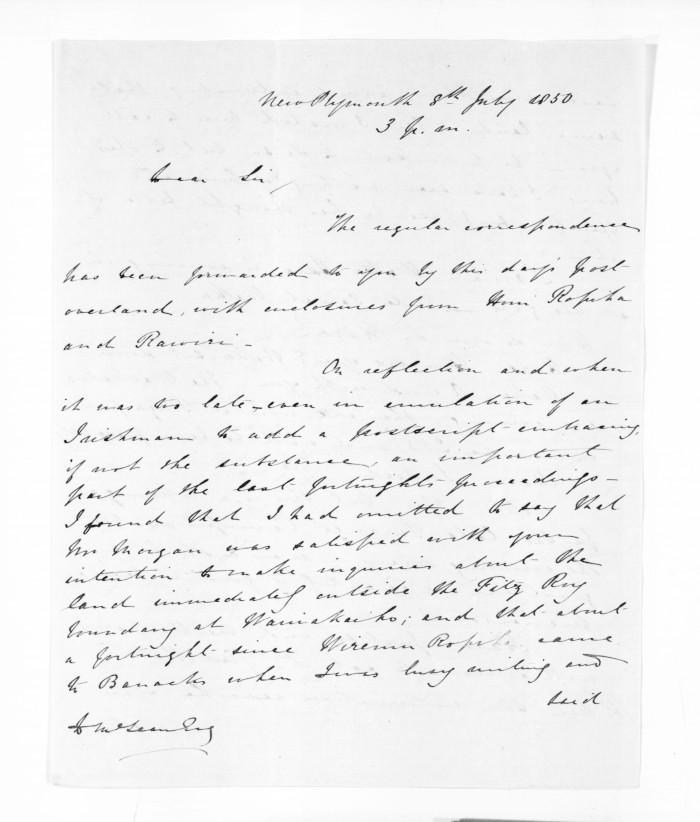 New Plymouth 8th July 1850
3 p.m.
Dear Sir,
The regular correspondence
has been forwarded to you by this day's post
overland, with enclosures from Honi Ropiha
and Rawiri -
On reflection and when
it was too late - even in emulation of an
Irishman to add a postscript embracing,
if not the substance, an important
part of the last fortnights proceedings -
I found that I had omitted to say that
Mr Morgan was satisfied with your
intention to make inquiries about the
land immediately outside the Fitz Roy
boundary at Waiwakaiho; and that about
a fortnight since Wiremu Ropiha came
to Baracks when I was busy writing and
said
D McLean Esq